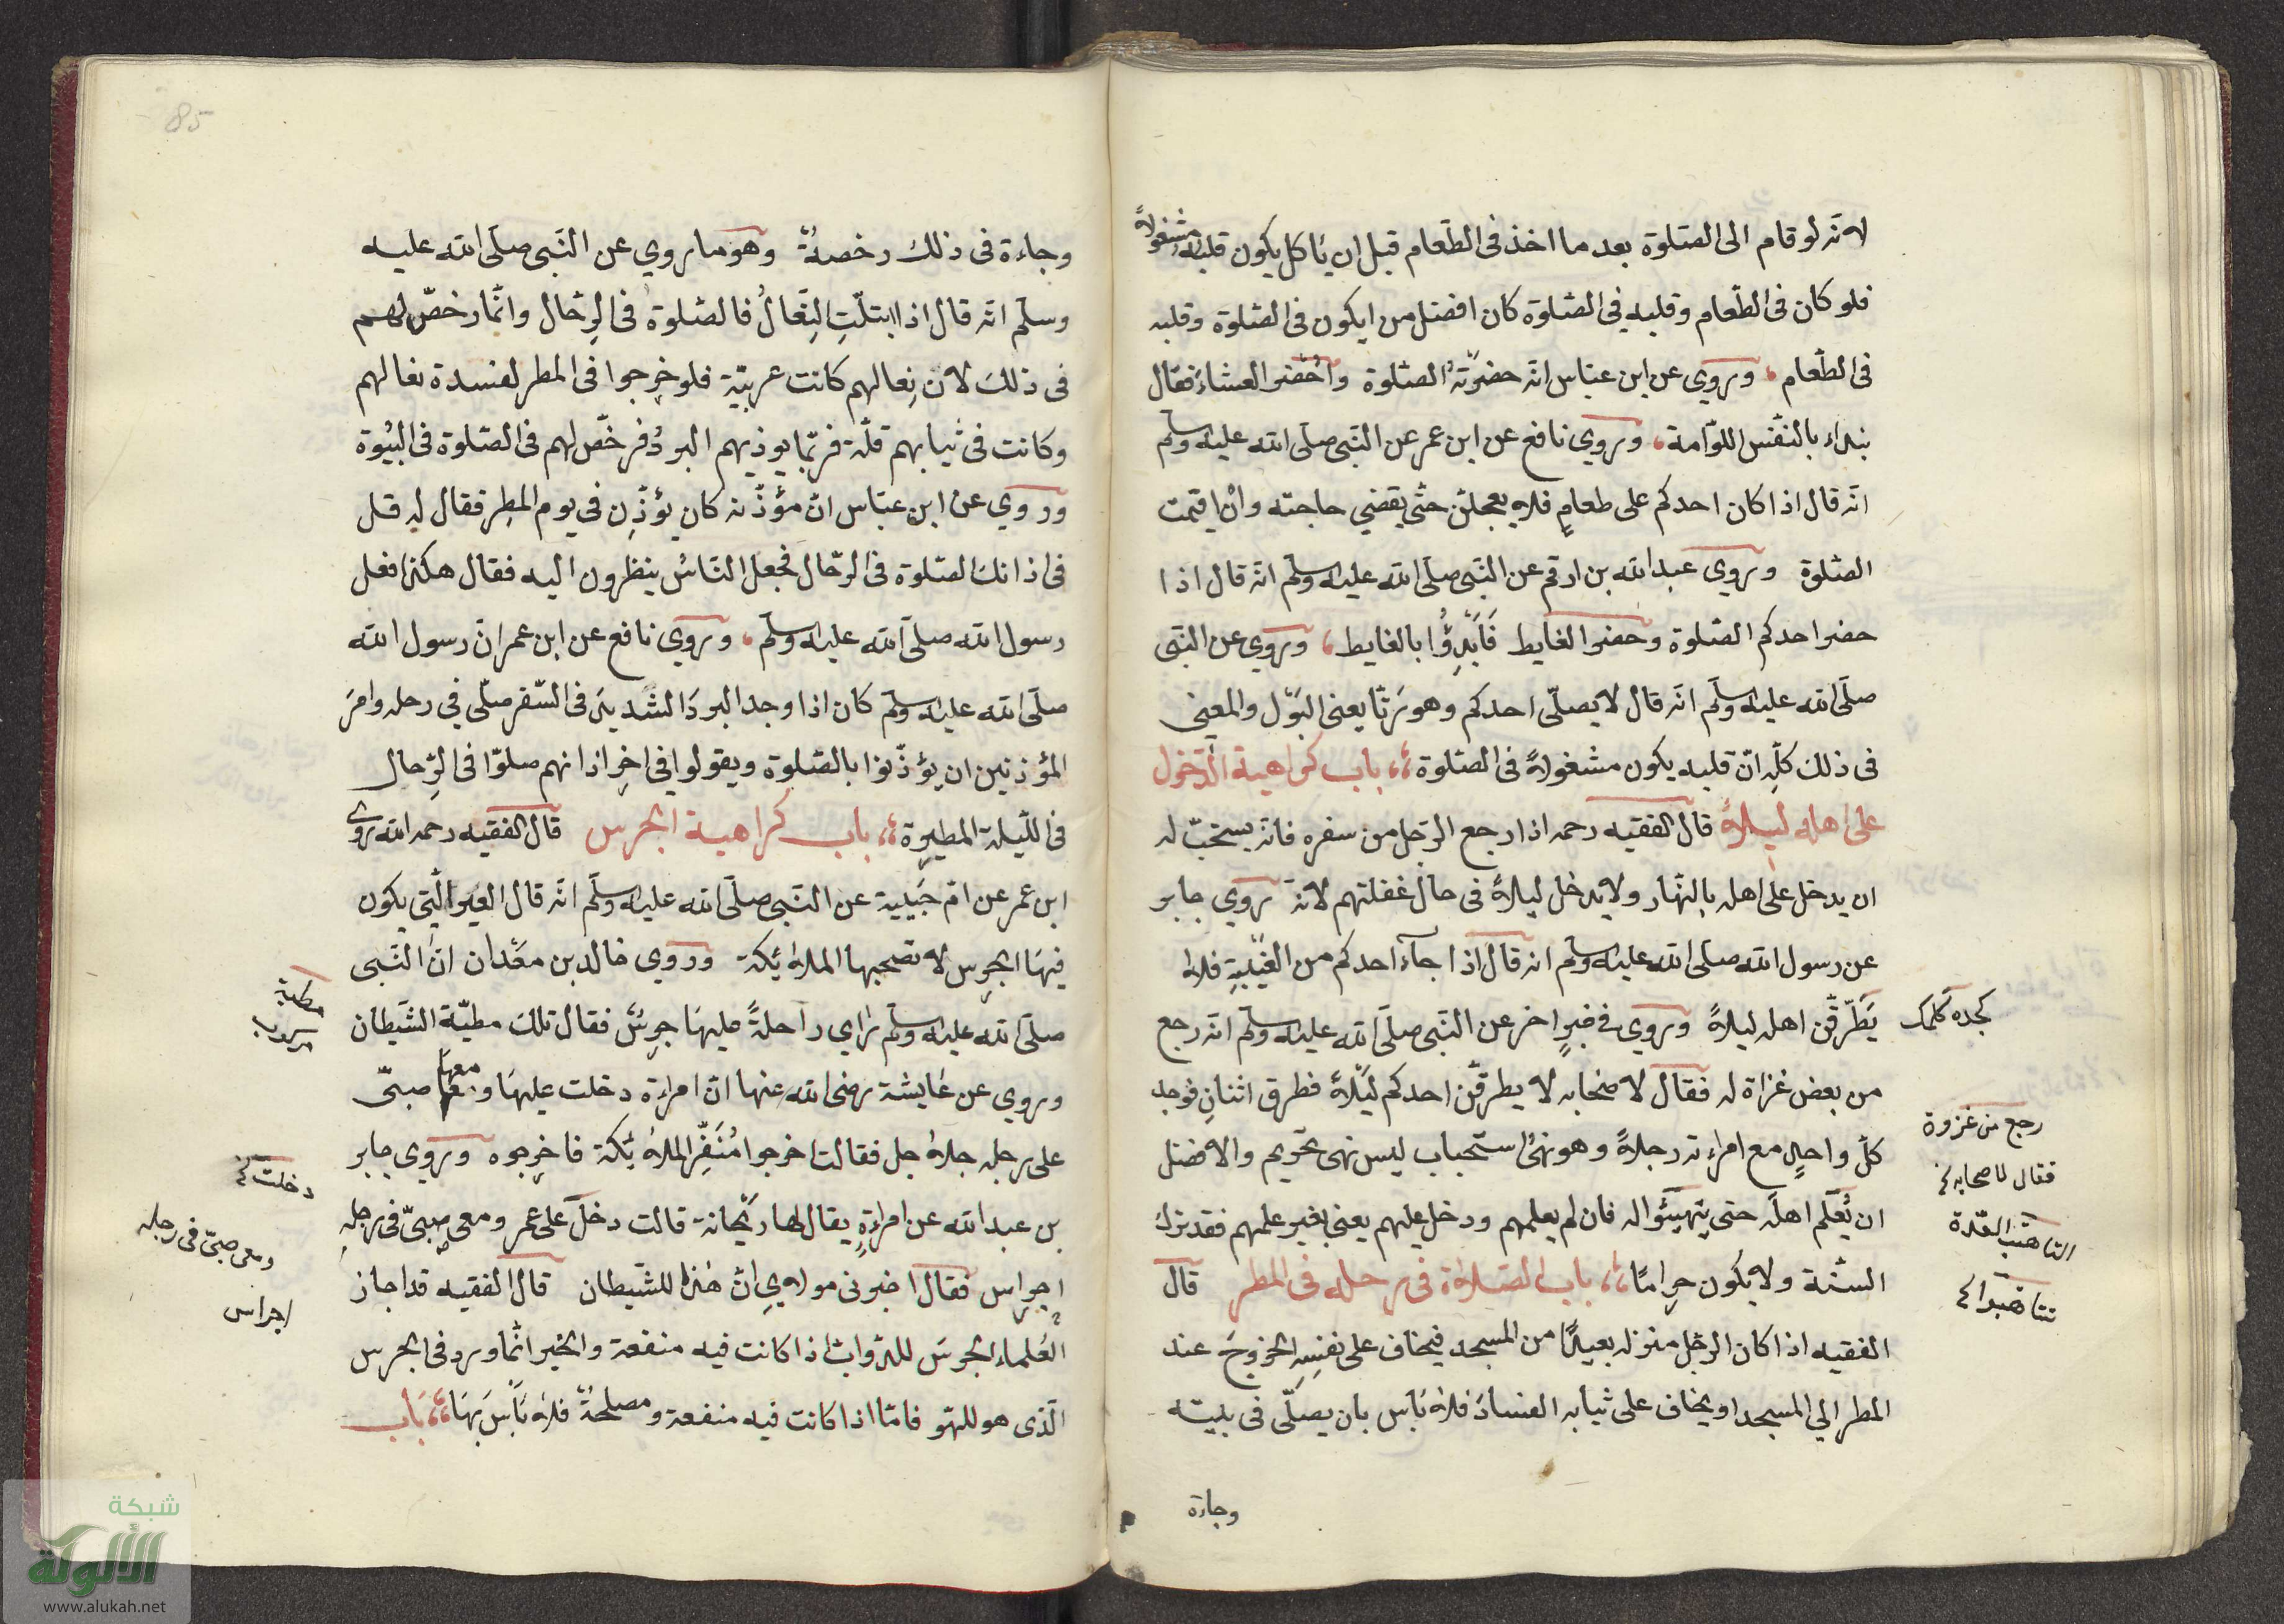 لانه لو قام الى الصّلوة بعد ما اخذ فى الطّعام قبل ان ياكل يكون قلبه مشغولاً
فلو كان فى الطّعام وقلبه فى الصّلوة كان افضل من ايكون فى الصّلوة وقلبه
فى الطّعام وروي عن ابن عبّاس انّه حضرته الصّلوة واُحضر العشاء فقال
نبداء بالنفس اللوّامة وروي نافع عن ابن عمر عن النّبى صلّى الله عليه وسلّم
انّه قال اذا كان احدكم على طعامٍ فلا يعجلنّ حتّى يقضي حاجته وان اقيمت
الصّلوة وروي عبد الله بن ارقم عن النّبى صلّى الله عليه وسلّم انّه قال اذا
حضر احدكم الصّلوة وحضر الغايط فَابْدِؤُا بالغايط وروي عن النّبى
صلّى الله عليه وسلّم انّه قال لا يصلّى احدكم وهو زنّا يعنى البَوْل والمعنى
فى ذلك كلّه انّ قلبه يكون مشغولاً فى الصّلوة باب كراهية الدّخول
على اهله ليلاً قال الفقيه رحمه اذا رجع الرّجل من سفره فانّه يستحبّ له
ان يدخل على اهله بالنّهار ولا يدخل ليلاً فى حال غفلتهم لانّه روي جابر
عن رسول الله صلى الله عليه وسلّم انه قال اذا جآء احدكم من الغَيْبةِ فلا
يَطرّقن اهله ليلاً وروي فى خبرٍ اخر عن النّبى صلّى الله عليه وسلّم انّه رجع
من بعض غزاة له فقال لاصحابه لا يطرقّن احدكم ليلاً فطرق اثنانِ فوجد
كلّ واحدٍ مع امراءته رجلاً وهو نهىُ استحباب ليس نهى تحريم والافضل
ان يُعلم اهلَه حتى يتهيّئوا له فان لم يعلمهم ودخل عليهم يعنى بغير علمهم فقد ترك
السنّة ولا يكون حراماً باب الصّلاة فى رحله فى المطر قال
الفقيه اذا كان الرّجل منزله بعيداً من المسجد فيخاف على نفسِه الخروجَ عند
المطر الي المسجد او يخاف على ثيابه الفسادَ فلا بَاس بان يصلّى فى بيته
وجاءة
رجع من غزوة
فقال لاصحابه
85
وجاءة فى ذلك رخصةٌ وهو ما روي عن النّبى صلّى الله عليه
وسلّم انّه قال اذا ابتلّتِ النِّعالُ فالصّلوةُ فى الرّحال وانّما رخصّ لهم
فى ذلك لانّ نِعالهم كانت عربيّة فلو خرجوا فى المطر لفسدة نعالهم
وكانت فى ثيابهم قلّة فربّما يوذيهم البردُ فرخّص لهم فى الصّلوة فى البيُوة
وروي عن ابن عبّاس انّ مؤذّنه كان يؤذّن فى يوم المطِر فقال له قل
فى اذانك الصّلوة فى الرّحال فجعل النّاسُ ينظرون اليه فقال هكذا فعل
رسول الله صلّى الله عليه وسلّم وروي نافع عن ابن عمر انّ رسول الله
صلّى الله عليه وسلّم كان اذا وجد البردَ الشديدَ فى السّفر صلّى في رحله وامرَ
المؤذنين ان يؤذّنوا بالصّلوة ويقولوا فى اخرِ اذانهم صلوّا فى الرّحال
فى اللّيلة المطيرة باب كراهية الجرس قال الفقيه رحمه الله روى
ابن عمر عن امّ حَبيبة عن النّبى صلّى الله عليه وسلّم انّه قال العير الّتى يكون
فيهَا الجرس لا تصحبها الملائكة وروي خالد بن معْدان انّ النّبى
صلّى الله عليه وسلّم راي راحلةً عليهَا جرسٌ فقال تلك مطيّة الشّيطان
وروي عن عايشة رضى الله عنها انّ امراءة دخلت عليهَا ومعها صبىّ
على رجله جلاجل فقالت اخرجوا مُنَفِّر الملائكة فاخرجوه وروي جابر
بن عبد الله عن امراءةٍ يقال لها ريْحانة قالت دخل على عمر ومعى صبىّ فى رجله
اجراس فقال اخبرنى مولايِ انّ هذا للشّيطان قال الفقيه قد اجاز
العُلماء الجرسَ للدّوابّ اذا كانت فيه منفعة والخبر انّما ورد فى الجرس
الّذى هو للهّو فامّا اذا كانت فيه منفعة ومصلحةٌ فلا بَاْسَ بهَا بَاب
مطية
دخلت
ومعى صبىّ فى رجله
اجراس
شبكة
الألوكة
www.alukah.net